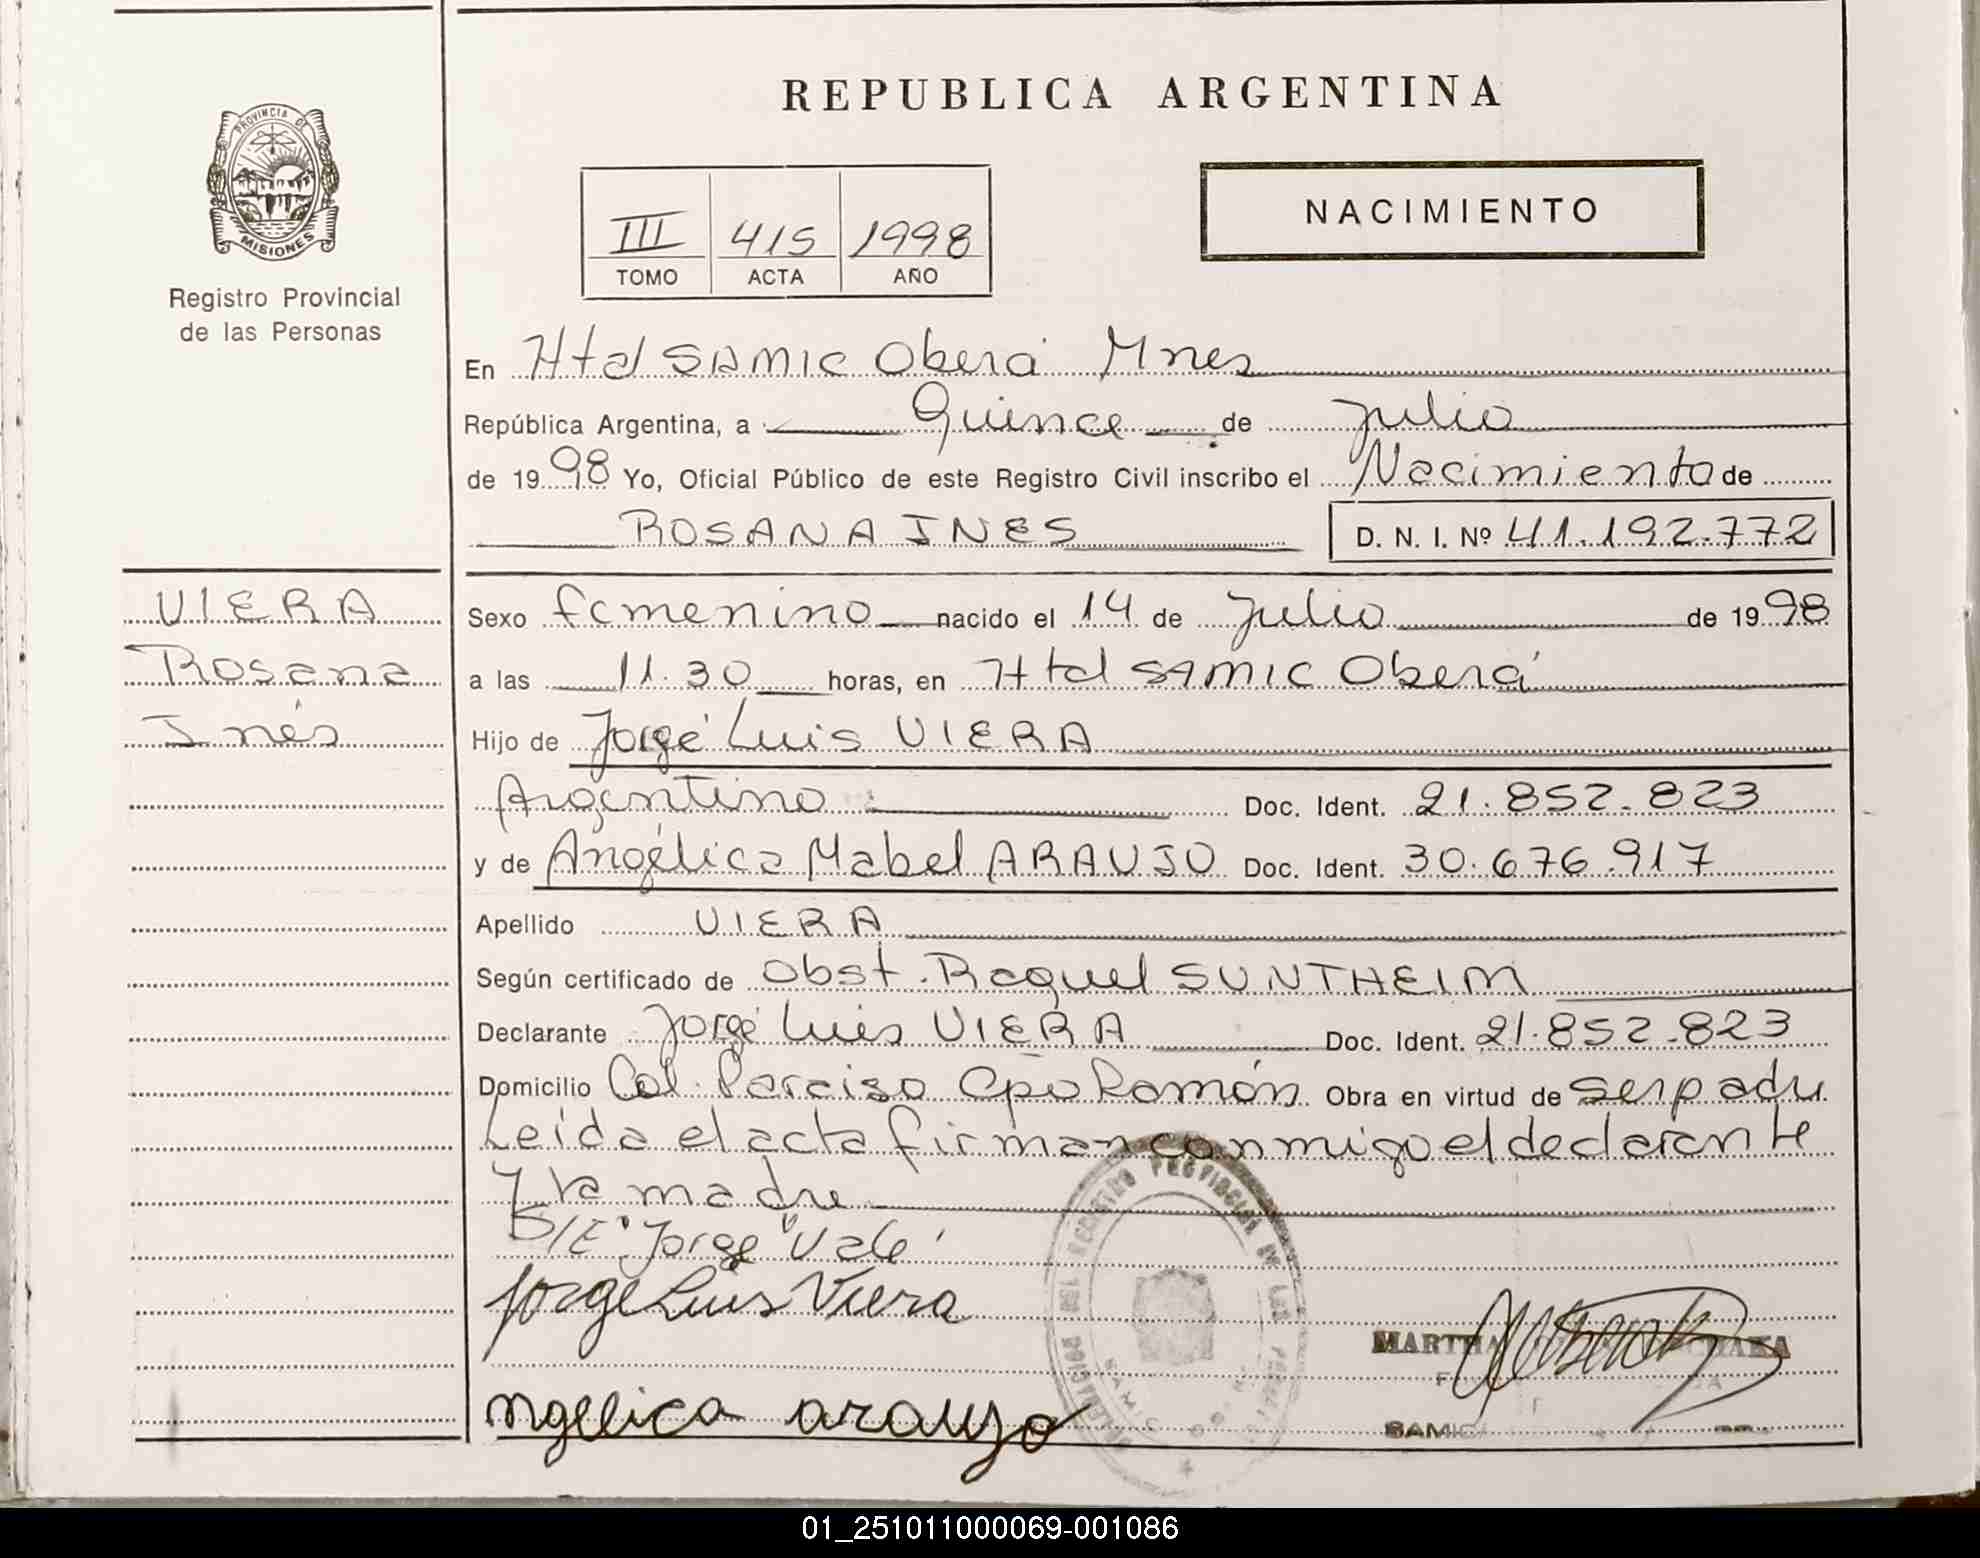 REPUBLICA ARGENTINA
PROVINCIA DE
MISIONES
Registro Provincial
de las Personas
III 415 1998
TOMO ACTA AÑO
NACIMIENTO
En Htal SAMIC Oberá Mnes
República Argentina, a Quince de Julio
de 1998 Yo, Oficial Público de este Registro Civil inscribo el Nacimiento de
ROSANA INES D. N. I. Nº 41.192.772
VIERA
Rosana
Inés
Sexo femenino nacido el 14 de Julio de 1998
a las 11.30 horas, en Htal SAMIC Oberá
Hijo de Jorge Luis VIERA
Argentino Doc. Ident. 21.852.823
y de Angélica Mabel ARAUJO Doc. Ident. 30.676.917
Apellido VIERA
Según certificado de Obst. Raquel SUNTHEIM
Declarante Jorge Luis VIERA Doc. Ident. 21.852.823
Domicilio Col. Paraiso Cpo Ramón Obra en virtud de ser padre
Leída el acta firman conmigo el declarante
y la madre
S/E "Jorge" Vale
Jorge Luis Viera
MARTHA
ngelica araujo
SAMIC
01_251011000069-001086